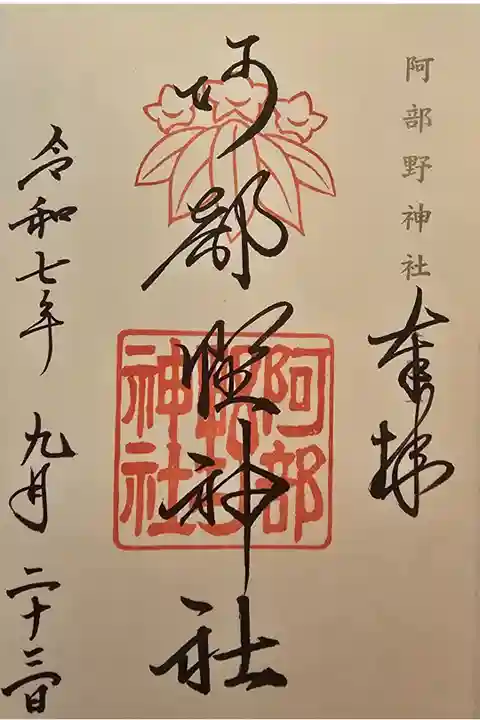 阿部野神社
奉拝
阿部野神社
阿部
神社
令和七年 九月 二十三日